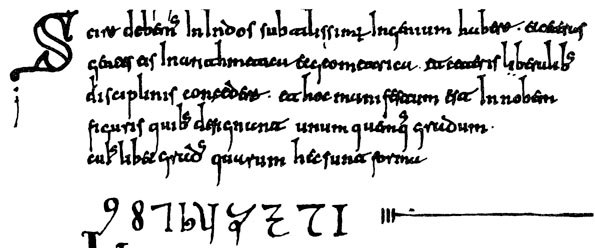 Scire debemꝰ in Indos subtilissimū ingenium habere. et ceteras
gentes eis In arithmetica et geometrica. et ceteris liberalibꝰ
disciplinis concedere. et hoc manifestum est In nobem
figuris quibꝰ designant unum quemqꝫ gradum.
cuiꝰlibet gradꝰ quarum hec sunt forma
9 8 7 6 5 4 3 2 1